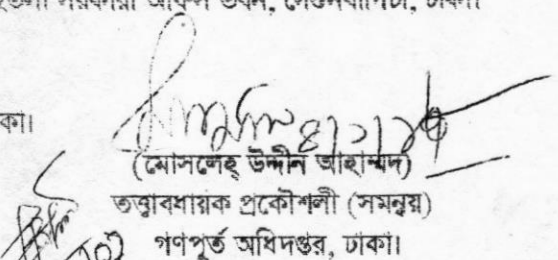 সরকারী অফিস ভবন, সেগুনবাগিচা, ঢাকা।
কা।
(মোসলেহ্ উদ্দীন আহাম্মদ)
তত্ত্বাবধায়ক প্রকৌশলী (সমন্বয়)
গণপূর্ত অধিদপ্তর, ঢাকা।